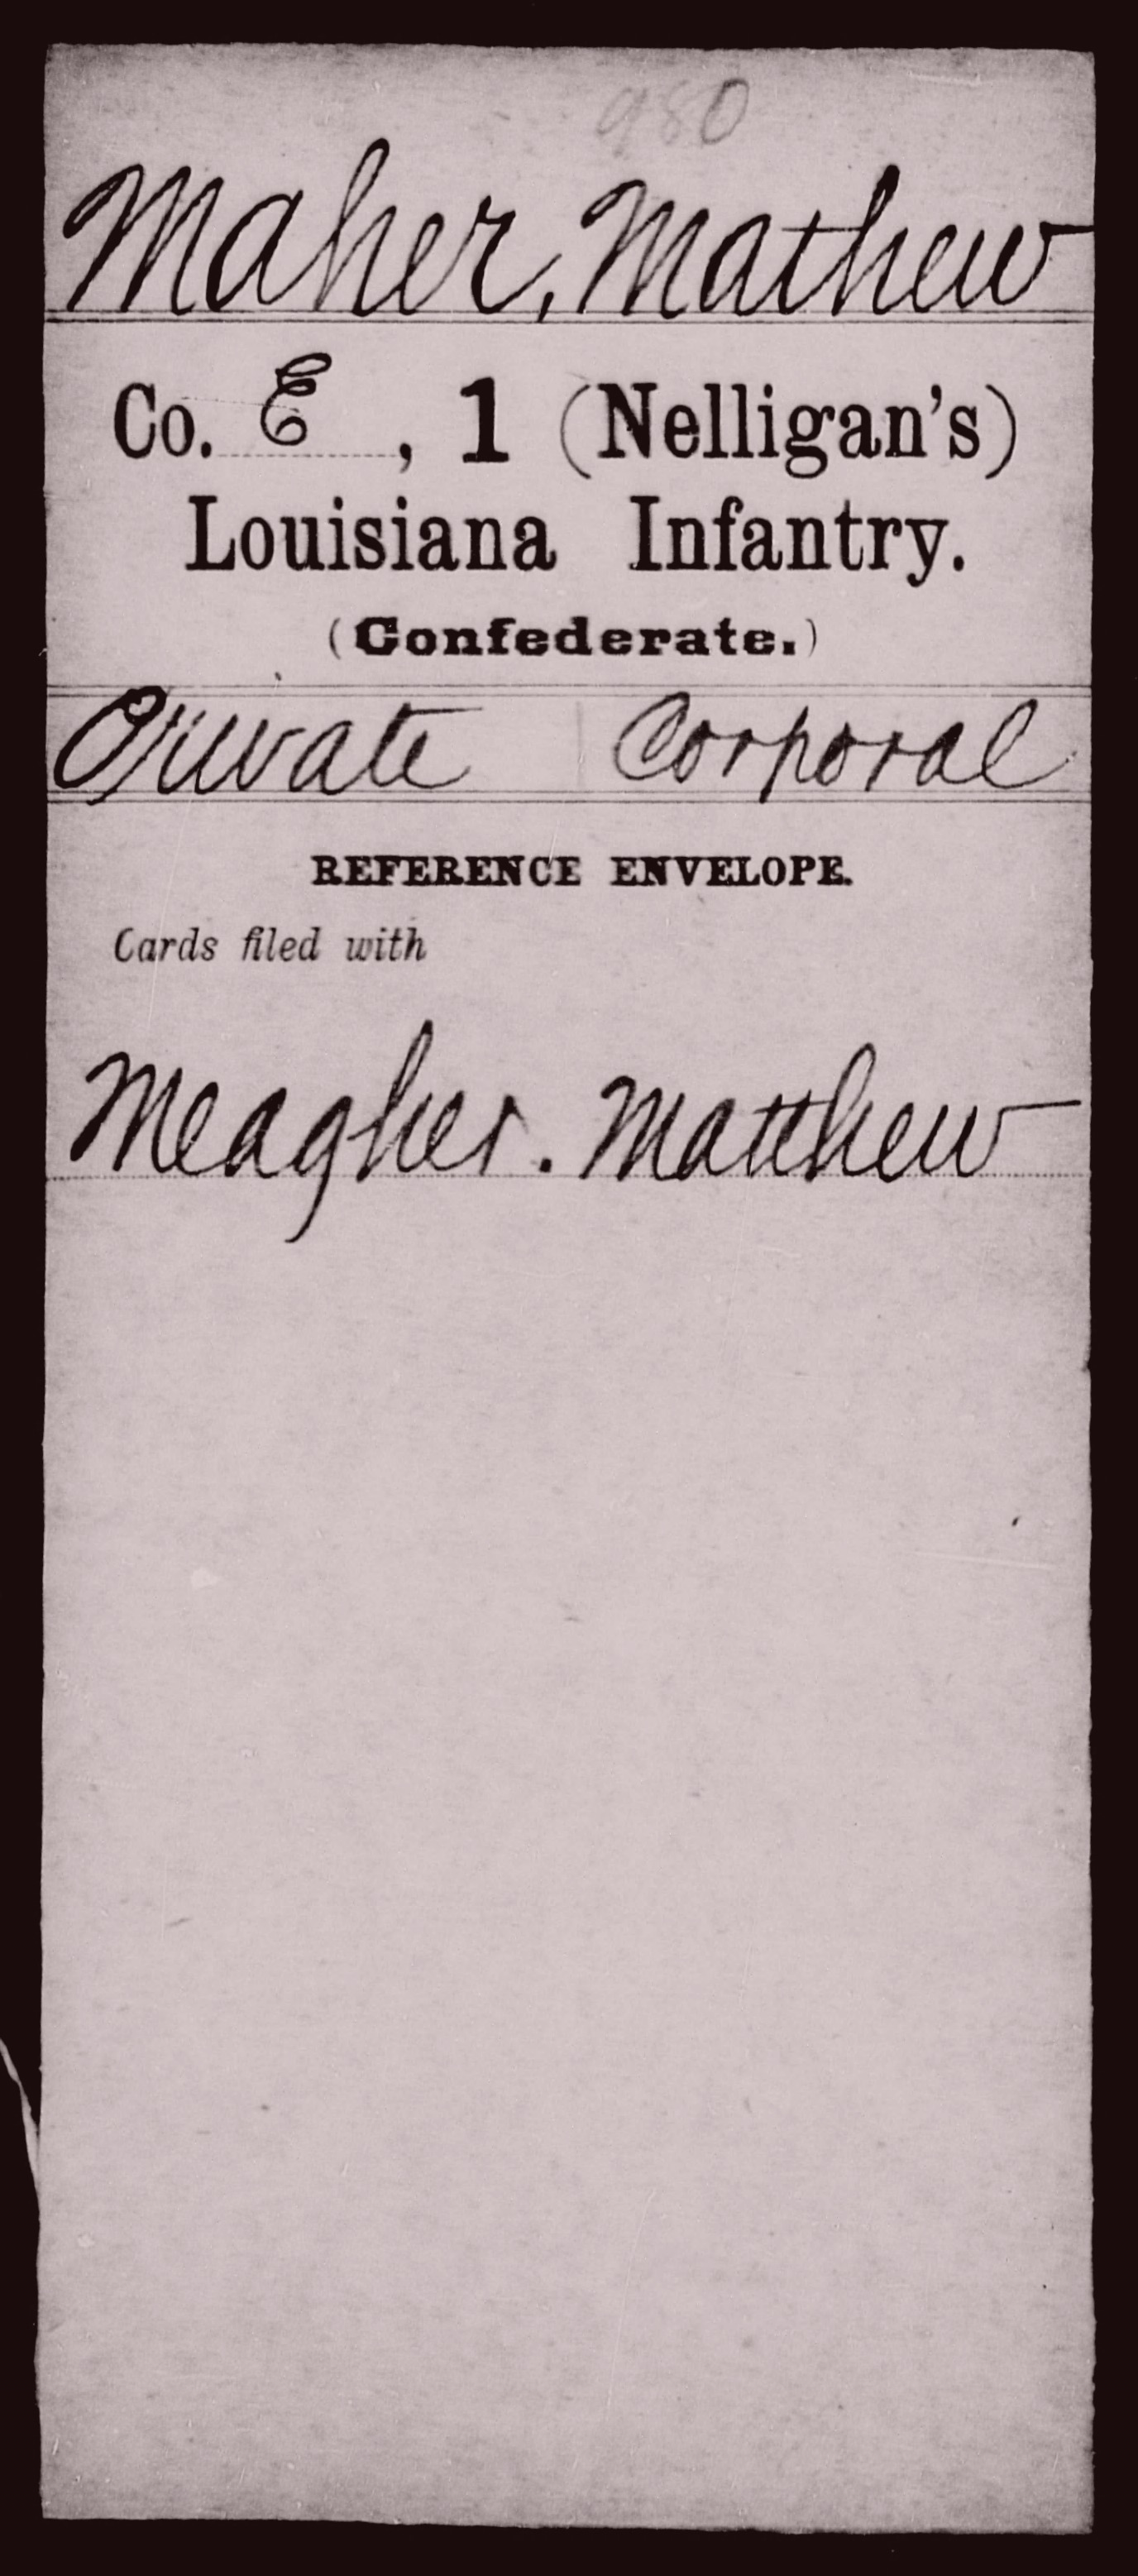 980
Maher, Mathew
Co. E, 1 (Nelligan's)
Louisiana Infantry.
(Confederate.)
Private Corporal
REFERENCE ENVELOPE.
Cards filed with
Meagher. Matthew